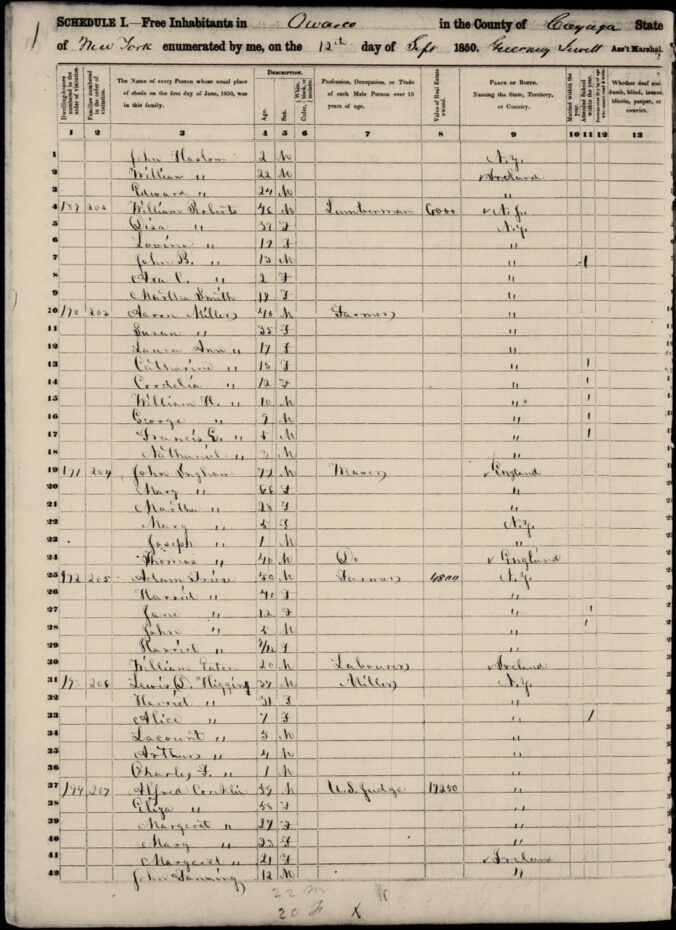 SCHEDULE I.—Free Inhabitants in Owasco in the County of Cayuga State
of New York enumerated by me, on the 12th day of Sept 1850. Ass't Marshal.
DESCRIPTION.
Dwelling-houses numbered in the order of visitation.
Families numbered in the order of visitation.
The Name of every Person whose usual place of abode on the first day of June, 1850, was in this family.
Age.
Sex.
Color, White, black, or mulatto.
Profession, Occupation, or Trade of each Male Person over 15 years of age.
Value of Real Estate owned
PLACE OF BIRTH. Naming the State, Territory, or Country.
Married within the year.
Attended School within the year.
Whether deaf and dumb, blind, insane, idiotic, pauper, or convict.
1 2 3 4 5 6 7 8 9 10 11 12 13
1 John Haslom 2 M N.Y.
2 William " 22 M Ireland
3 Edward " 24 M "
4 189 202 William Roberts 46 M Lumberman 6000 N.J.
5 " 38 F N.Y.
6 " 19 F "
7 John B. " 13 M " 1
8 C. " 2 F "
9 Martha Smith 19 F "
10 190 203 Aaron Miller 40 M Farmer "
11 Susan " 35 F "
12 Laura Ann " 17 F "
13 Catharine " 15 F " 1
14 Cordelia " 12 F " 1
15 William H. " 10 M " 1
16 George " 9 M " 1
17 Francis E. " M " 1
18 Nathaniel " 3 M "
19 191 204 John Ingham 77 M England
20 Mary " 66 F "
21 Martha " 28 F "
22 Mary " 5 F N.Y.
23 Joseph " 1 M "
24 Thomas " 40 M Do England
25 192 205 Adam 50 M Farmer 4800 N.Y.
26 Harriet " 40 F "
27 Jane " 12 F " 1
28 John " 5 M " 1
29 Harriet " /12 F "
30 William Eaten 20 M Labourer Ireland
31 193 206 Lewis D. Higgins 37 M Miller N.Y.
32 Harriet " 31 F "
33 Alice " 7 F " 1
34 Lacount " 5 M "
35 Arthur " 4 M "
36 Charles F. " 1 M "
37 194 207 Alfred Conklin 59 M U.S. Judge 17250 "
38 Eliza " 58 F "
39 Margaret " 27 F "
40 Mary " 23 F "
41 Margaret " 21 F Ireland
42 John Fanning 12 M "
22 M
20 F X